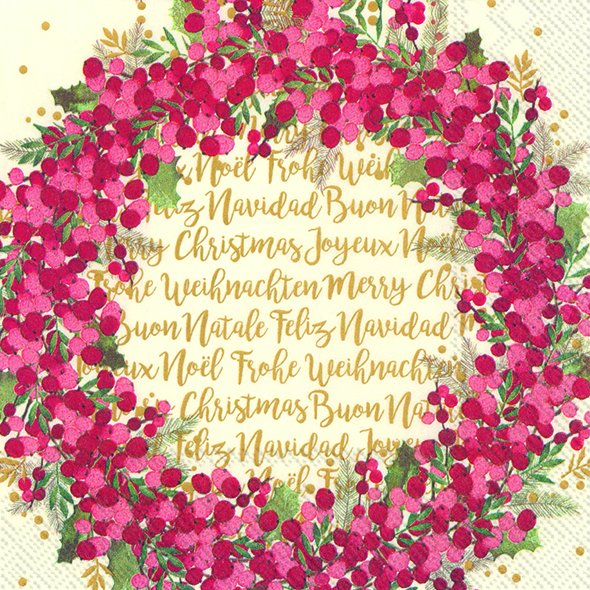 Merry
Noël Frohe Weih
Feliz Navidad Buon Na
rry Christmas Joyeux Noël
Frohe Weihnachten Merry Chri
Buon Natale Feliz Navidad M
Joyeux Noël Frohe Weihnachten
Christmas Buon Nat
Feliz Navidad Joyeu
Noël Frohe